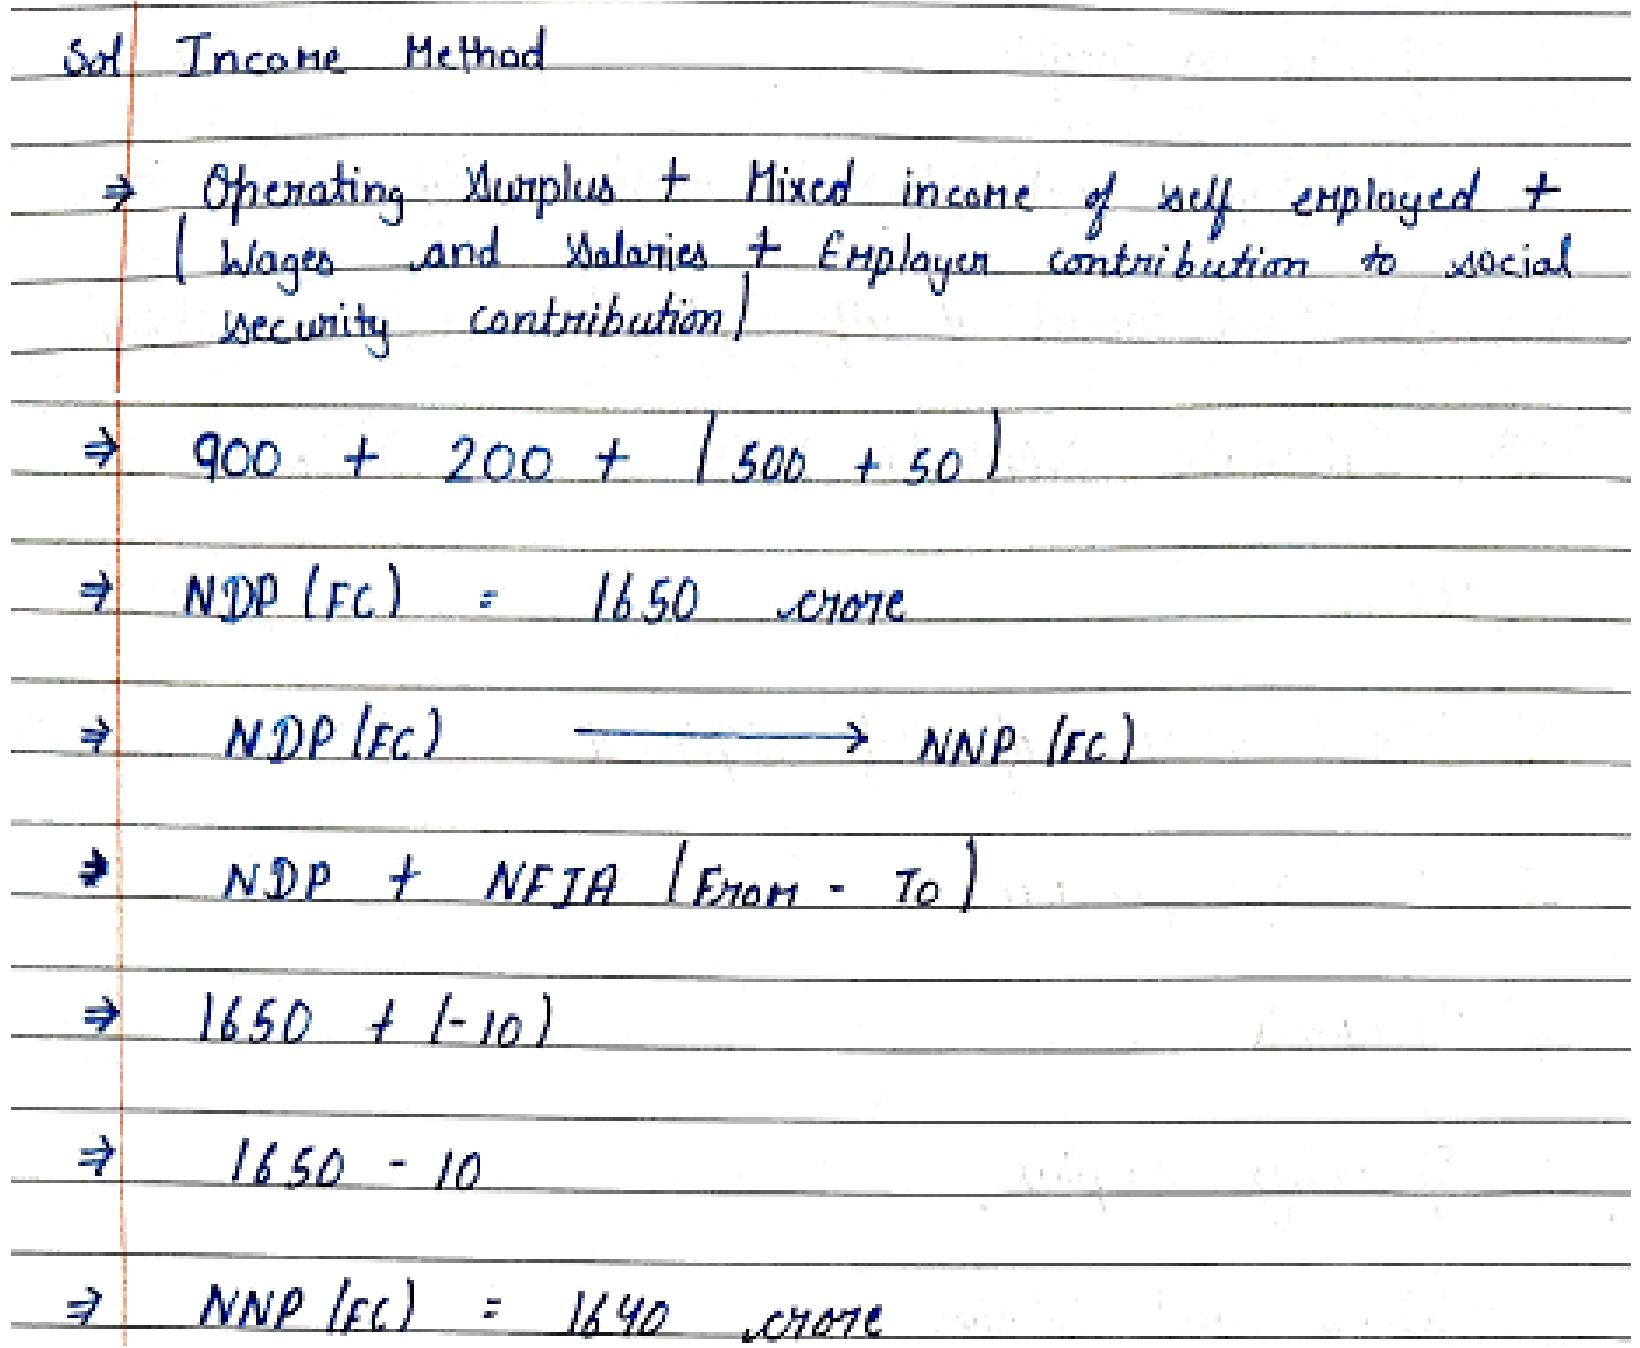 Sol Income Method
⇒ Operating Surplus + Mixed income of self employed +
( Wages and Salaries + Employer contribution to social
security contribution)
⇒ 900 + 200 + (500 + 50)
⇒ NDP (FC) = 1650 crore
⇒ NDP (FC) ⟶ NNP (FC)
⇒ NDP + NFIA (From - To)
⇒ 1650 + (-10)
⇒ 1650 - 10
⇒ NNP (FC) = 1640 crore